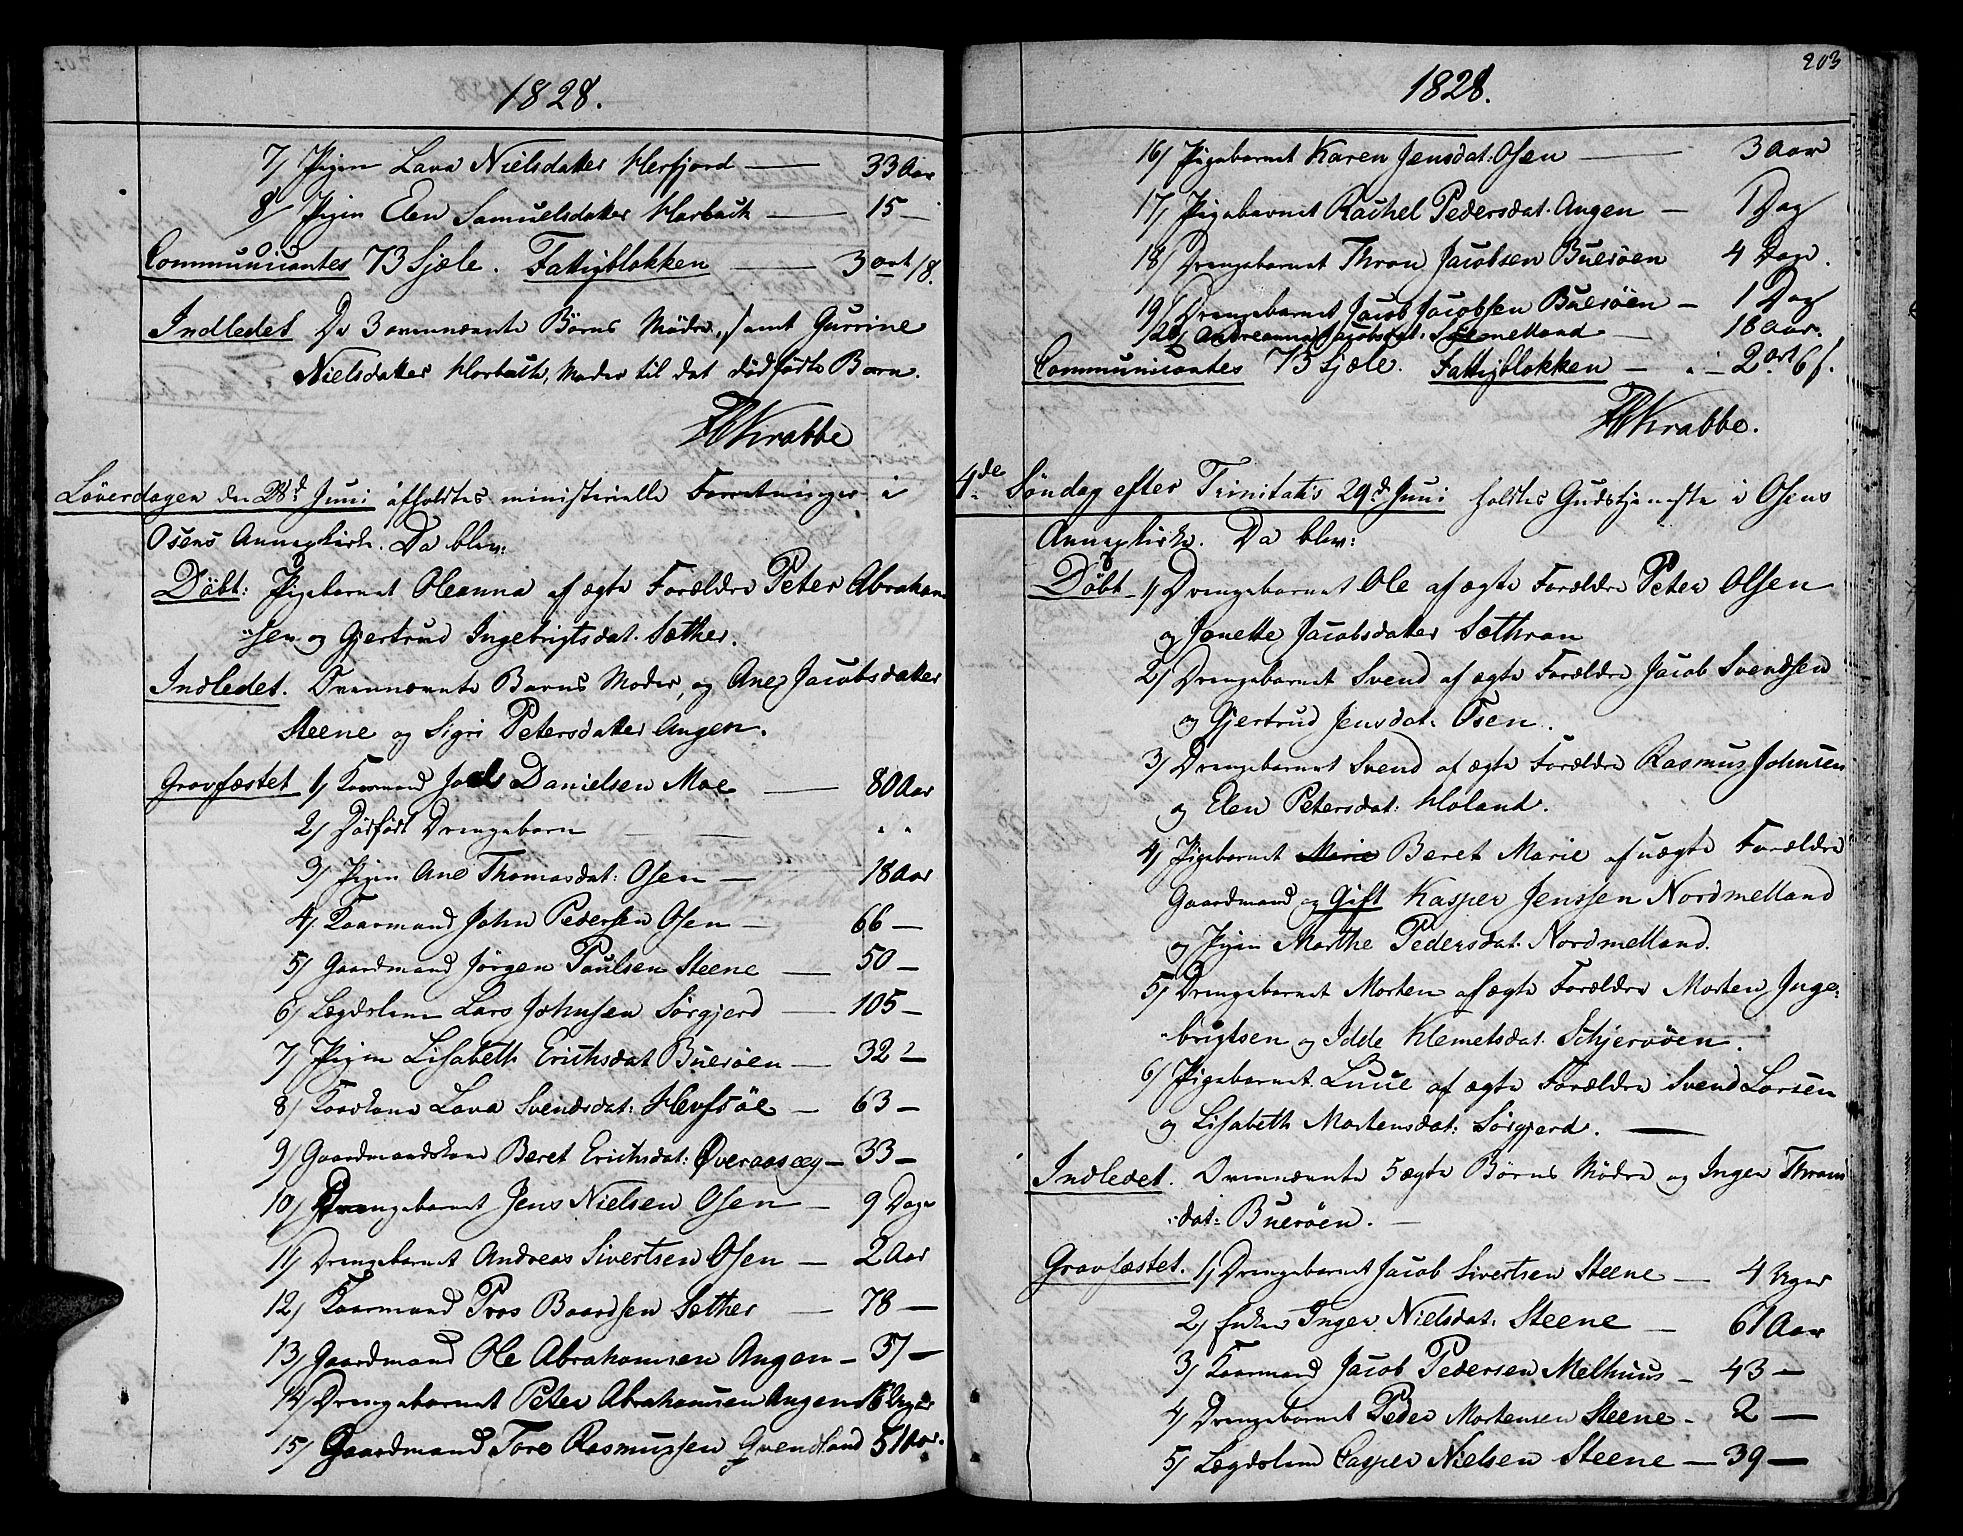 1828.
7/ Pigen Lava Nielsdatter Herfjord — 33 Aar
8/ Pigen Elen Samuelsdatter Harbach — 15 —
Communicantes 73 Sjæle. Fattigblokken — 3 ort 18.
Indledet De 3 ovennævnte Børns Mødre, samt Gurrine
Nielsdatter Harbach, Moder til det dødfødte Barn.
Krabbe
Løverdagen den 28d Juni afholdtes ministerielle Forretninger i
Osens Annexkirke. Da blev:
Døbt: Pigebarnet Oleanna af ægte Forældre Peter Abraham
"sen og Gjertrud Ingebrigtsdat. Sæther.
Indledet. Ovennævnte Barns Moder, og Ane Jacobsdatter
Steene og Sigri Petersdatter Angen.
Gravfæstet 1/ Kaarmand Danielsen Moe — 80 Aar
2/ Dødfødt Drengebarn — " "
3/ Pigen Ane Thomasdat: Osen — 18 Aar
4/ Kaarmand John Pedersen Osen — 66 —
5/ Gaardmand Jørgen Paulsen Steene — 50 —
6/ Lægdslem Lars Johnsen Sørgjerd — 105 —
7/ Pigen Lisabeth Erichsdat Buerøen — 32 —
8/ Kaarkone Lava Svendsdat: Hevsøe — 63 —
9/ Gaardmandskone Beret Erichsdat: Øveraasæg — 33 —
10/ Drengebarnet Jens Nielsen Osen — 9 Dage
11/ Drengebarnet Andreas Sivertsen Osen — 2 Aar
12/ Kaarmand Pros Baardsen Sæther — 78 —
13/ Gaardmand Ole Abrahamsen Angen — 51 —
14/ Drengebarnet Peter Abrahamsen Angen Uger
15/ Gaardmand Tore Rasmussen Qvendland 51 Aar.
203
1828.
16/ Pigebarnet Karen Jensdat: Osen — 3 Aar
17/ Pigebarnet Rachel Pedersdat. Angen — 1 Dag
18/ Drengebarnet Thron Jacobsen Buerøen 4 Dage.
19/ Drengebarnet Jacob Jacobsen Buerøen — 1 Dag
20/ Andreanna Jacobsdat: Sørmelland — 18 Aar.
Communicantes 73 Sjæle. Fattigblokken — " — 2 ort 6 s.
Krabbe.
4de Søndag efter Trinitatis 29d Juni holdtes Gudstjeneste i Osens
Annexkirke. Da blev:
Døbt 1/ Drengebarnet Ole af ægte Forældre Peter Olsen
og Jonette Jacobsdatter Sæthran
2/ Drengebarnet Svend af ægte Forældre Jacob Svendsen
og Gjertrud Jensdat: Osen.
3/ Drengebarnet Svend af ægte Forældre Rasmus Johnsen
og Elen Petersdat: Holand.
4/ Pigebarnet Marie Beret Marie af uægte Forældre
Gaardmand og Gift Kasper Jenssen Nordmelland
og Pigen Marthe Pedersdat. Nordmelland.
5/ Drengebarnet Morten af ægte Forældre Morten Inge-
"brigtsen og Idde Klemetsdat. Schjerøen.
6/ Pigebarnet af ægte Forældre Svend Larsen
og Lisabeth Mortensdat: Sørgjerd. —
Indledet. Ovennævnte 5 ægte Børns Mødre og Inger Throns
"dat: Buerøen. —
Gravfæstet. 1/ Drengebarnet Jacob Sivertsen Steene — 4 Uger
2/ Enken Inger Nielsdat. Steene — 61 Aar
3/ Kaarmand Jacob Pedersen Melhuus — 43 —
4/ Drengebarnet Peder Mortensen Steene — 2 —
5/ Lægdslem Casper Nielsen Steene — 39 —